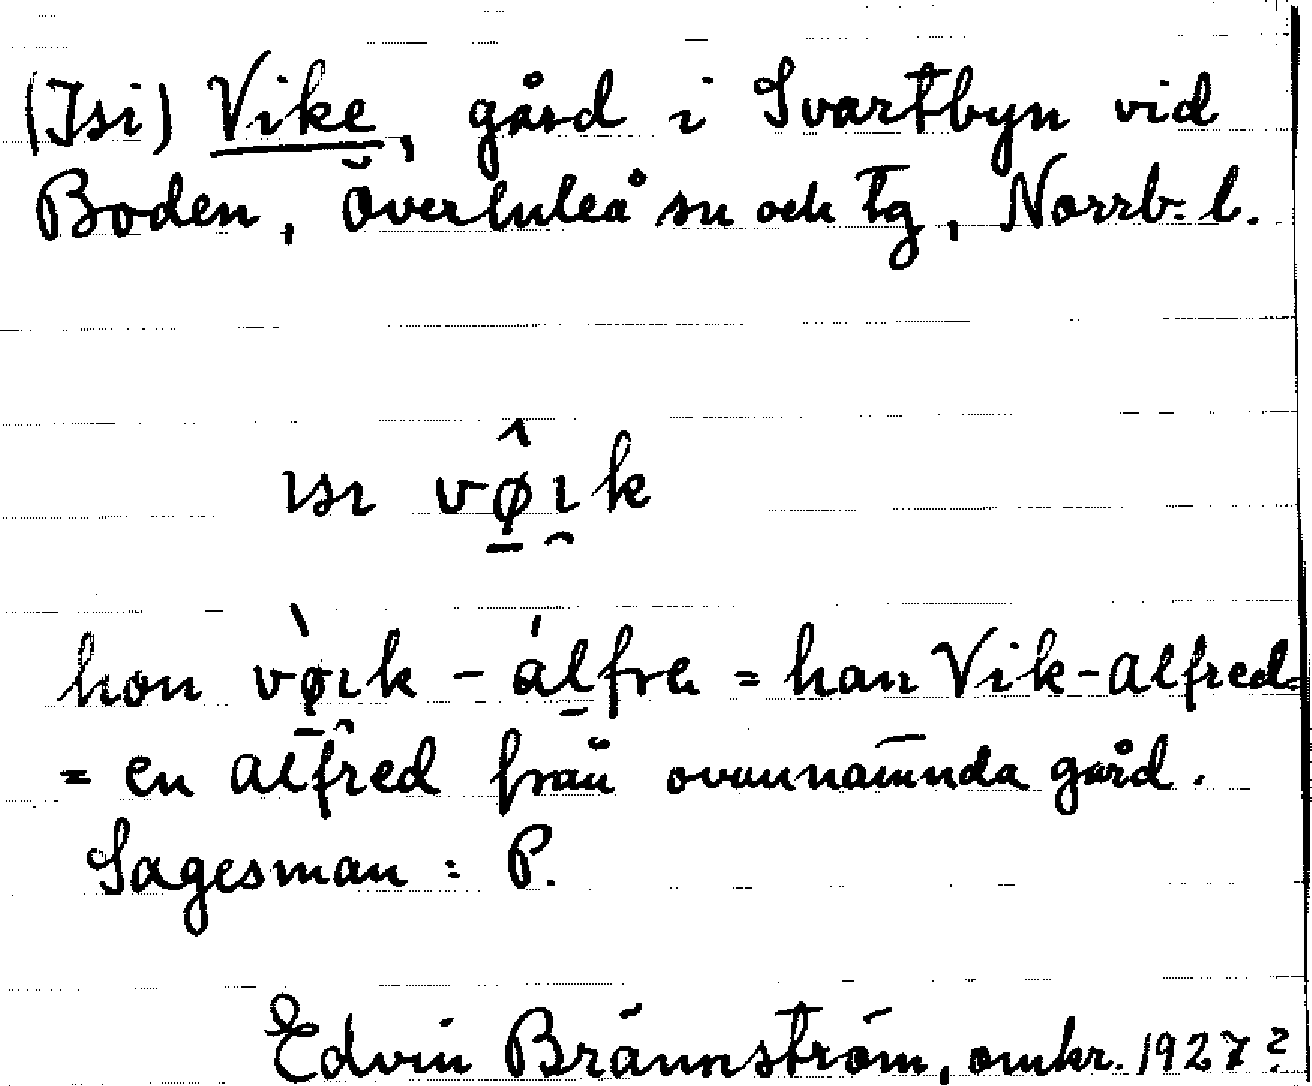 (Isi) Vike, gård i Svartbyn vid
Boden, Överluleå sn och tg, Norrb. l.
ısı vø̱̂ı̯k
hon vø̱̀ı̯k - áḻfre = han Vik-Alfred =
= en Alfred från ovannämnda gård.
Sagesman: P.
Edvin Brännström, omkr. 1927?